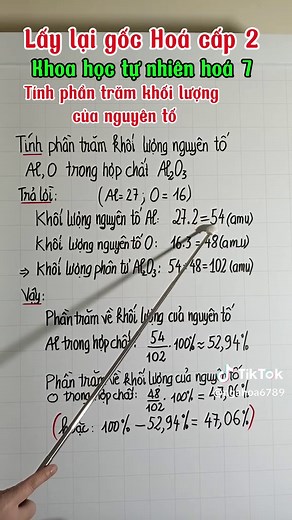 Lấy lại gốc Hoá cấp 2
Khoa học tự nhiên hoá 7
Tính phần trăm khối lượng
của nguyên tố
Tính phần trăm khối lượng nguyên tố
Al, O trong hợp chất Al₂O₃
Trả lời: (Al=27; O=16)
Khối lượng nguyên tố Al: 27.2=54(amu)
Khối lượng nguyên tố O: 16.3=48(amu)
⇒ Khối lượng phân tử Al₂O₃: 54+48=102(amu)
Vậy:
Phần trăm về khối lượng của nguyên tố
Al trong hợp chất: 54/102 . 100% ≈ 52,94%
Phần trăm về khối lượng của nguyên tố
O trong hợp chất: 48/102 . 100% = 47,06%
(hoặc: 100% − 52,94% = 47,06%)
TikTok